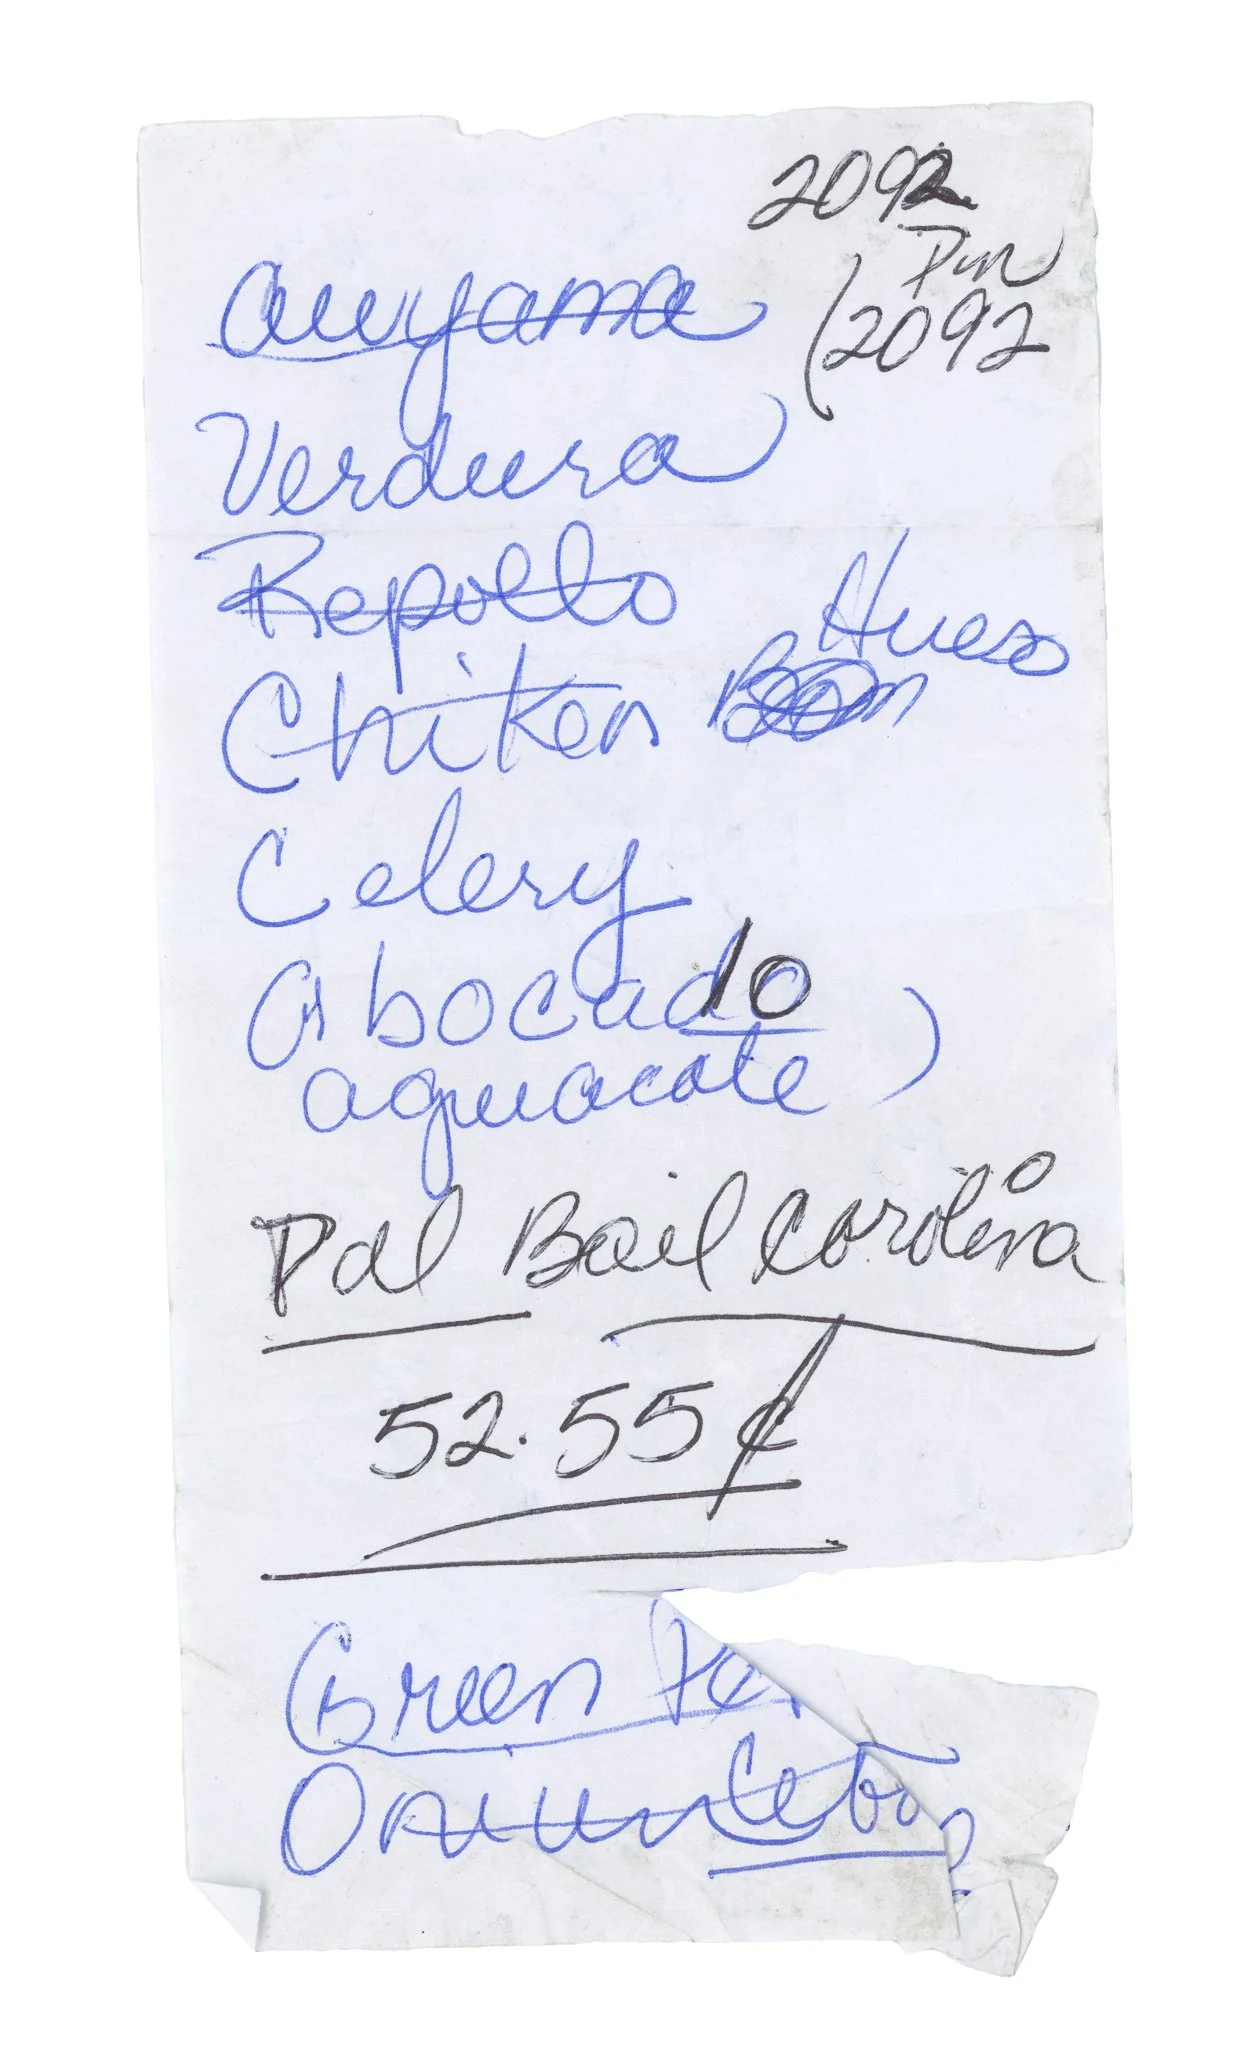 2092
Pin
(2092
auyama
Verdura
Repollo
Hueso
Chiken
Celery
Abocado
10
aguacate)
Pal Bail Carolina
52.55¢
Green
Oniun Cebo